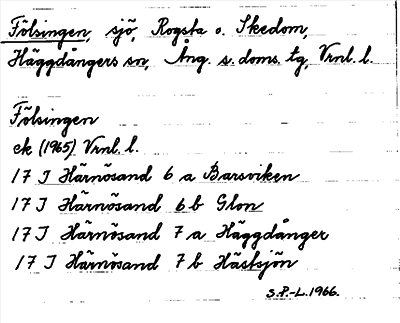 Fölsingen, sjö, Rogsta o. Skedom,
Häggdångers sn, Ång. s. doms. tg, Vrnl. l.
Fölsingen
ek (1965) Vrnl. l.
17 I Härnösand 6 a Barsviken
17 I Härnösand 6 b Glon
17 I Härnösand 7 a Häggdånger
17 I Härnösand 7 b Hästsjön
S.P.-L. 1966.